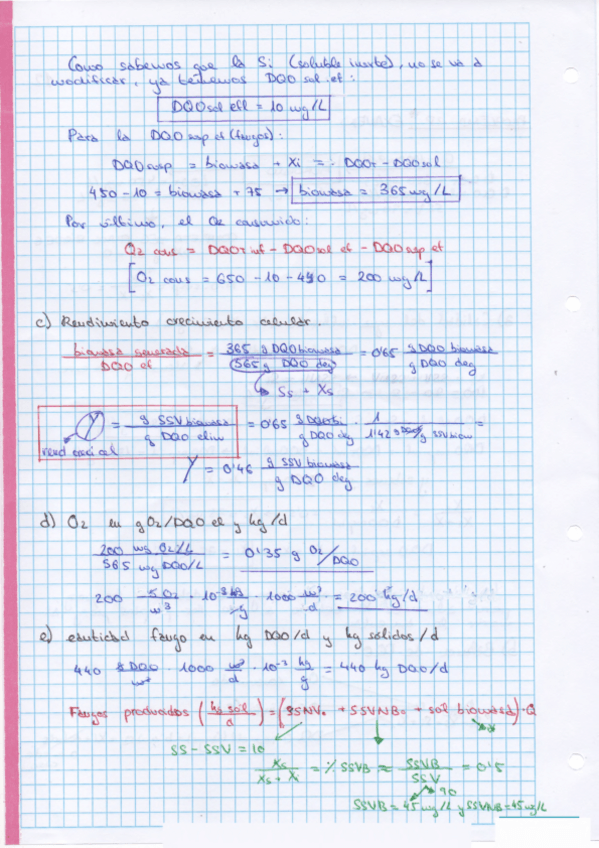 Como sabemos que la Si (soluble inerte), no se va a
modificar, ya tenemos DQO sol.ef:
DQO sol efl = 10 mg/L
Para la DQO susp ef (fangos):
DQO susp = biomasa + Xi = DQOT - DQOsol
450 - 10 = biomasa + 75 → biomasa = 365 mg/L
Por último, el O2 consumido:
O2 cons = DQOT inf - DQOsol ef - DQO susp ef
[O2 cons = 650 - 10 - 440 = 200 mg/L]
c) Rendimiento crecimiento celular.
biomasa generada / DQO ef = 365 g DQO biomasa / 565 g DQO deg = 0'65 g DQO biomasa / g DQO deg
Ss + Xs
Y = g SSV biomasa / g DQO elim = 0'65 g DQO bi / g DQO deg · 1 / 1'42 g DQO/g SSV biom =
rend creci cel
Y = 0'46 g SSV biomasa / g DQO deg
d) O2 en g O2/DQO el y kg/d
200 mg O2/L / 565 mg DQO/L = 0'35 g O2/DQO
200 g O2 / m³ · 10⁻³ kg / g · 1000 m³ / d = 200 kg/d
e) cantidad fango en kg DQO/d y kg sólidos/d
440 g DQO / m³ · 1000 m³ / d · 10⁻³ kg / g = 440 kg DQO/d
Fangos producidos (kg sol / d) = (SSNV0 + SSVNB0 + sol biomasa) · Q
SS - SSV = 10
Xs / Xs + Xi = % SSVB ≈ SSVB / SSV = 0'5
90
SSVB = 45 mg/L y SSVNB = 45 mg/L